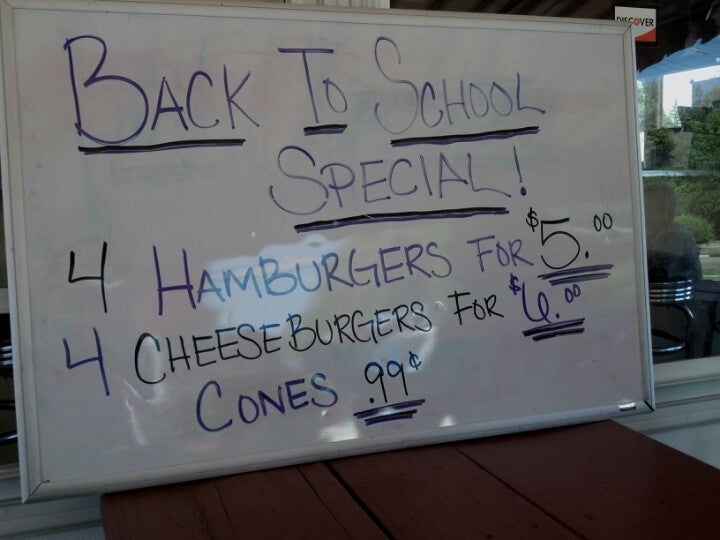 DISCOVER
BACK TO SCHOOL
SPECIAL!
4 HAMBURGERS FOR $5.00
4 CHEESEBURGERS FOR $6.00
CONES .99¢